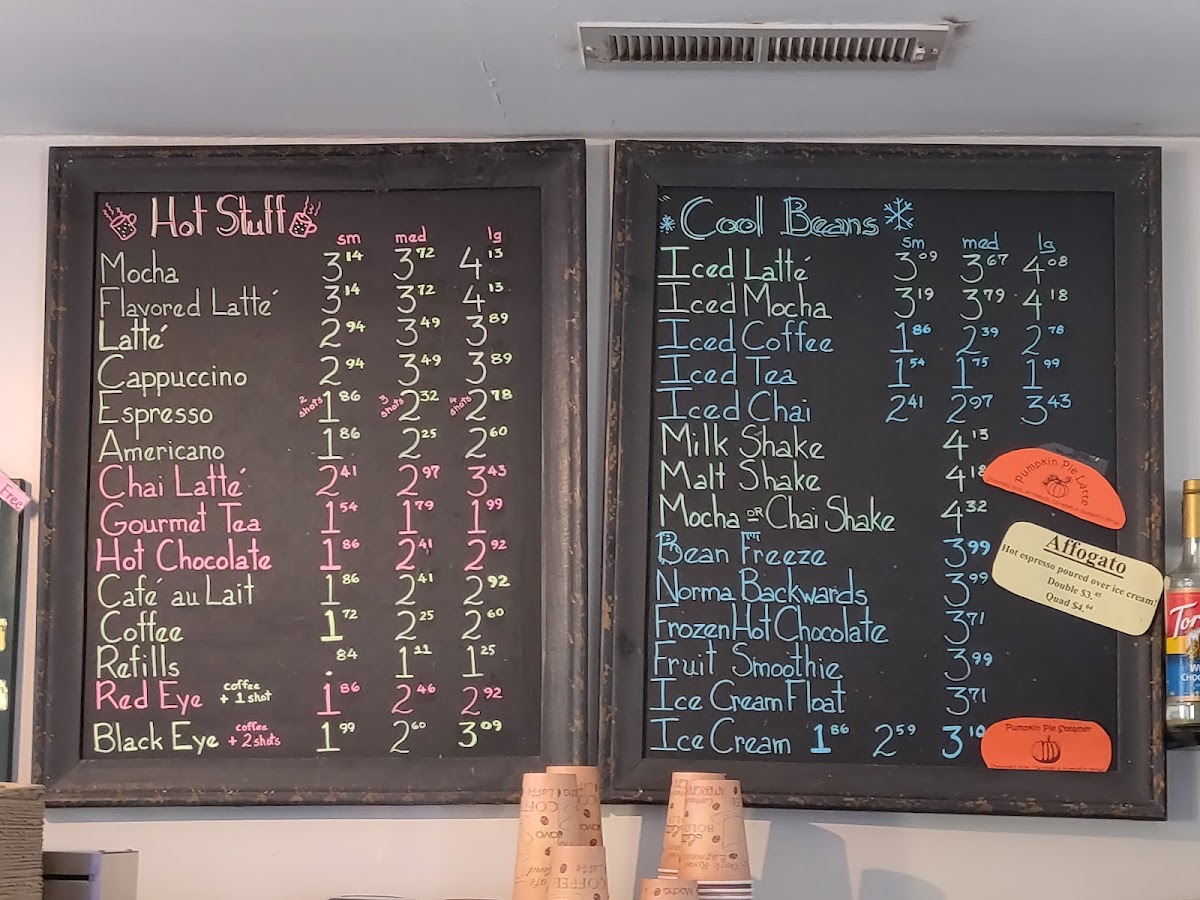 Hot Stuff
sm med lg
Mocha 3.14 3.72 4.13
Flavored Latté 3.14 3.72 4.13
Latté 2.94 3.49 3.89
Cappuccino 2.94 3.49 3.89
Espresso 2 shots 1.86 3 shots 2.32 4 shots 2.78
Americano 1.86 2.25 2.60
Chai Latté 2.41 2.97 3.43
Gourmet Tea 1.54 1.79 1.99
Hot Chocolate 1.86 2.41 2.92
Café au Lait 1.86 2.41 2.92
Coffee 1.72 2.25 2.60
Refills .84 1.11 1.25
Red Eye coffee + 1 shot 1.86 2.46 2.92
Black Eye coffee + 2 shots 1.99 2.60 3.09
Cool Beans
sm med lg
Iced Latté 3.09 3.67 4.08
Iced Mocha 3.19 3.79 4.18
Iced Coffee 1.86 2.39 2.78
Iced Tea 1.54 1.75 1.99
Iced Chai 2.41 2.97 3.43
Milk Shake 4.13
Malt Shake 4.18
Mocha or Chai Shake 4.32
Bean Freeze 3.99
Norma Backwards 3.99
Frozen Hot Chocolate 3.71
Fruit Smoothie 3.99
Ice Cream Float 3.71
Ice Cream 1.86 2.59 3.10
Pumpkin Pie Latte
Affogato
Hot espresso poured over ice cream!
Double $3.45
Quad $4.64
Pumpkin Pie Steamer
Free